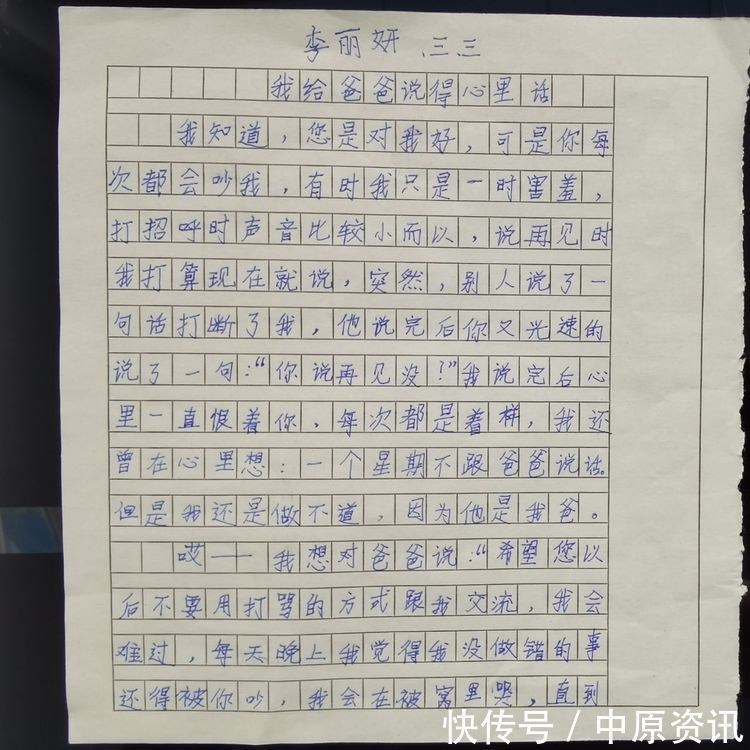 李丽妍 三三
我给爸爸说得心里话
我知道，您是对我好，可是你每
次都会吵我，有时我只是一时害羞，
打招呼时声音比较小而以，说再见时
我打算现在就说，突然，别人说了一
句话打断了我，他说完后你又光速的
说了一句：“你说再见没？”我说完后心
里一直恨着你，每次都是着样，我还
曾在心里想：一个星期不跟爸爸说话。
但是我还是做不道，因为他是我爸。
哎——我想对爸爸说：“希望您以
后不要用打骂的方式跟我交流，我会
难过，每天晚上我觉得我没做错的事
还得被你吵，我会在被窝里哭，直到
快传号 / 中原资讯